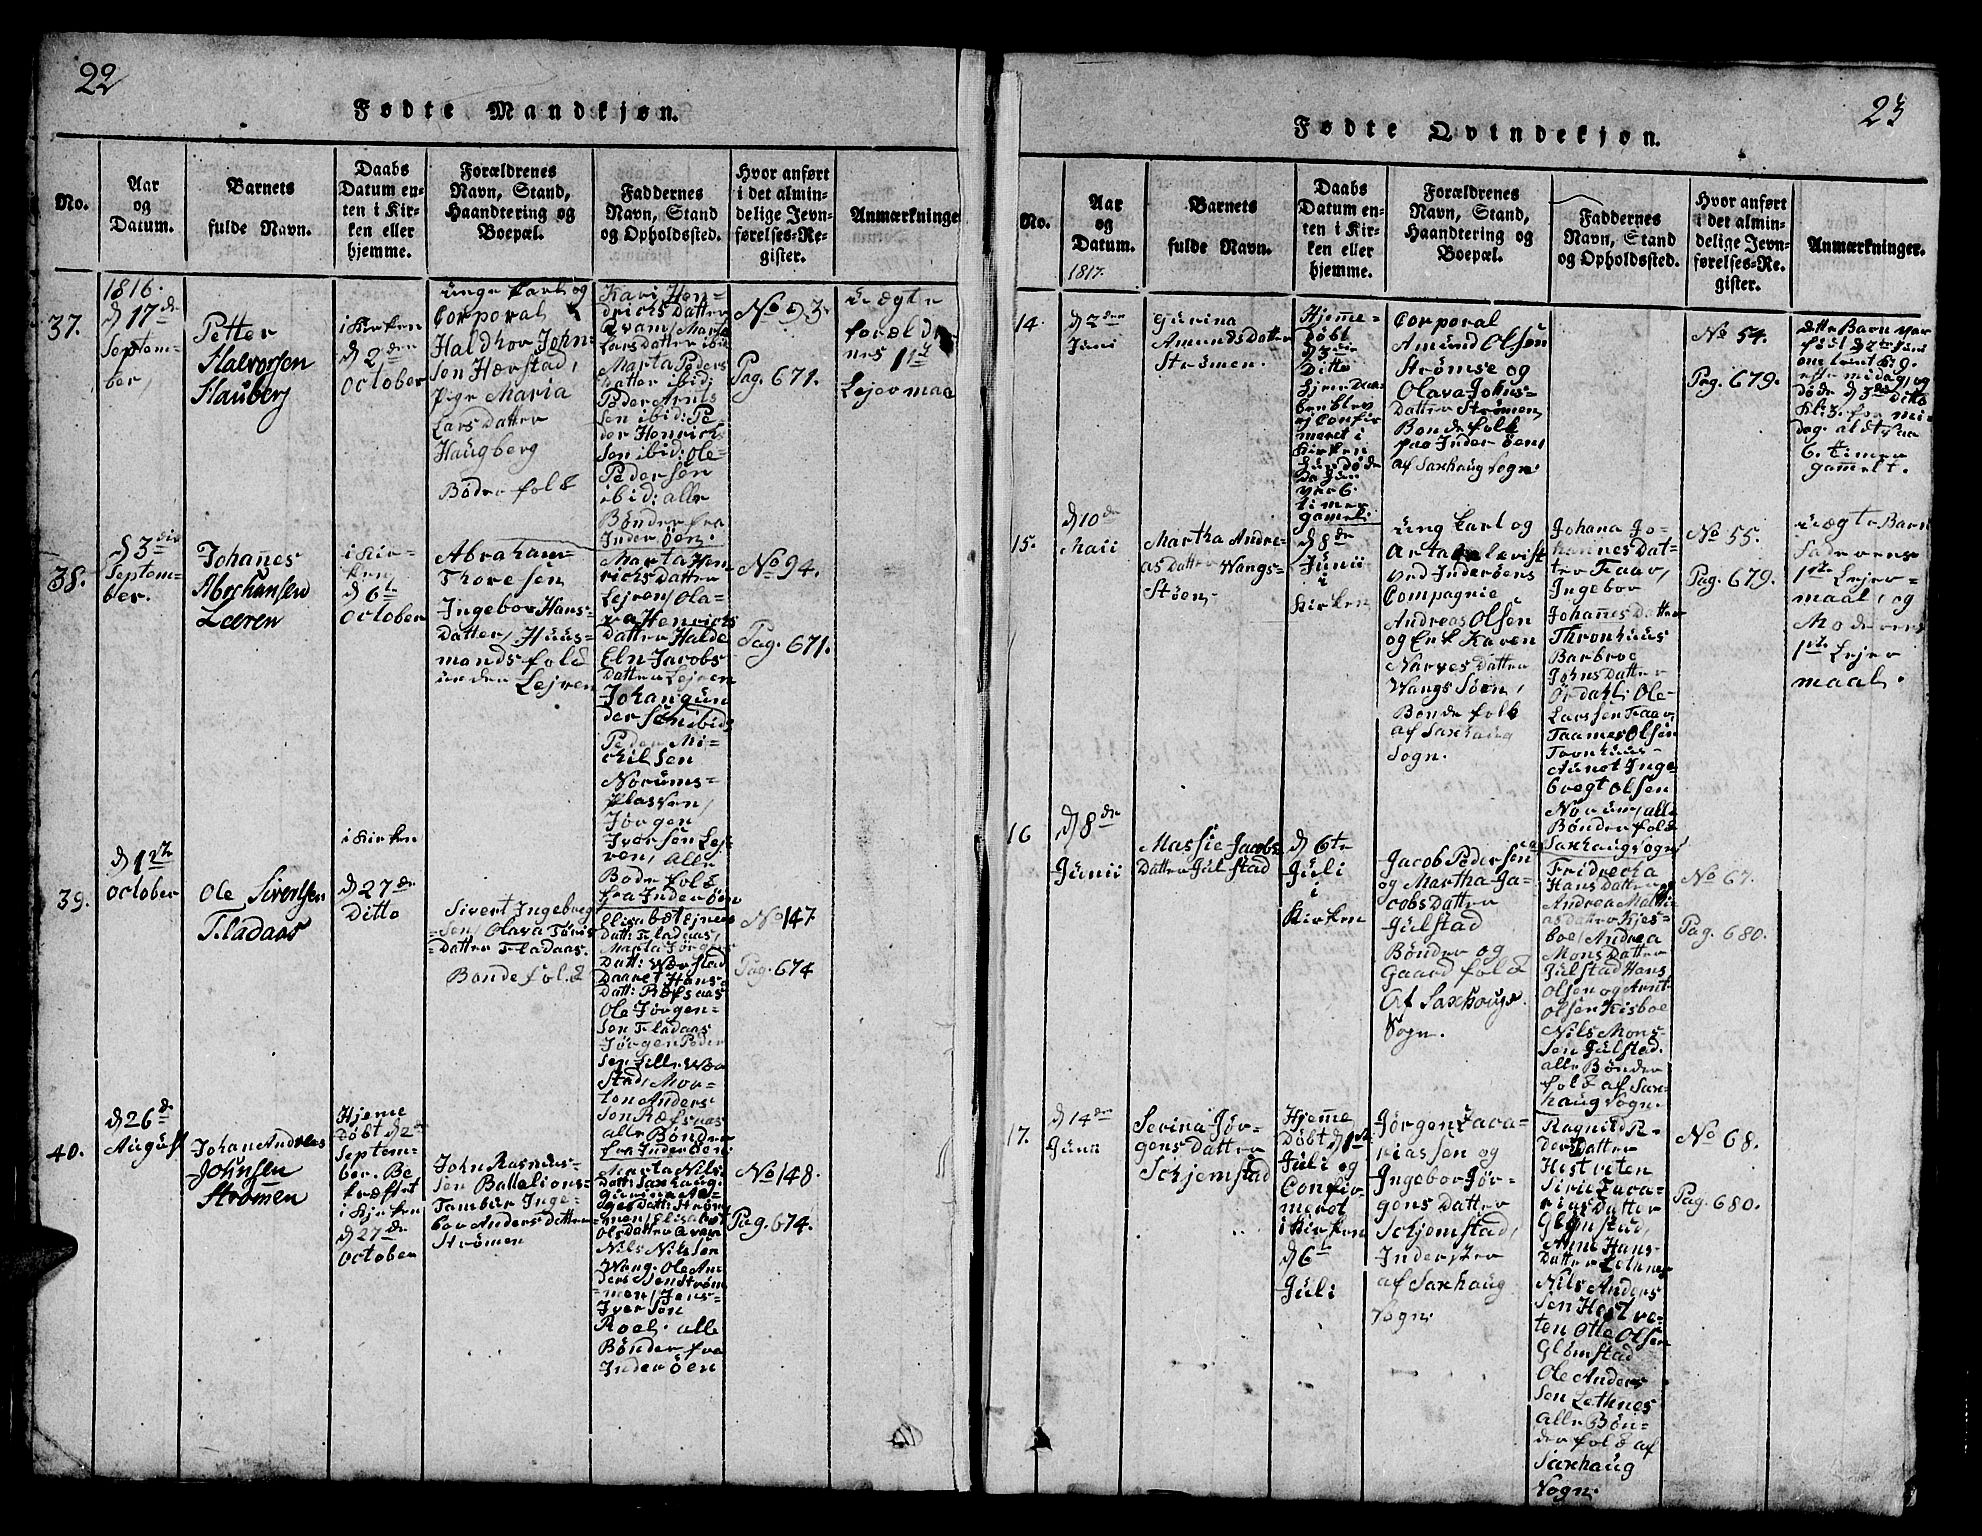 22
Fødte Mandkjøn.
No.
Aar
og
Datum.
Barnets
fulde Navn.
Daabs
Datum en-
ten i Kir-
ken eller
hjemme.
Forældrenes
Navn, Stand,
Haandtering og
Boepæl.
Faddernes
Navn, Stand
og Opholdssted.
Hvor anført
i det almin-
delige Jevn-
førelses-Re-
gister.
Anmærkninge
37.
1816.
d 17de
Septem-
ber,
Petter
Halvorsen
Hauberg
i Kirken
d 2den
October
unge Karl og
Corporal
Haldhor John-
sen Hærstad,
pige Maria
Lars Datter
Haugberg
Bønder folk
Kari Hen-
drichs Datter
Qvam, Marta
Lars datter ibid
Marta Peders
datter ibid:
Peder Arnts
sen ibid: Pe-
der Henrichs
sen ibid: Ole
Pedersen
ibid: alle
Bønder fra
Inderøen.
No 93
Pag. 671.
uægte
foreldre
nes 1ste
Lejermaal
38.
d 3die
Septem-
ber.
Johañes
Abrahamsen
Leeren
i Kir-
ken
d 6te
October
Abraham
Thoresen
Ingebor Hans-
Datter, Huus-
mands folk
under Lejren
Marta Hen
richs Datter
Lejren, Ola-
va Henrichs
datter Halde
Eln Jacobs
datter Lejren
Johan Gun
dersen ibid;
Peder Mi-
chilsen
Norums-
plassen,
Jørgen
Iversen Lej
ren, alle
Bønder folk
fra Inderøen
No 94.
Pag. 671.
39.
d 1ste
October
Ole Sivertsen
Fladaas
i Kirken
d 27de
Ditto
Sivert Ingebreg
sen, Olava Tøris
Datter Fladaas.
Bondefolk
Elisabet Ejners
Datt: Fladaas,
Marta Jørgens
Datt: Wærstad
Daaret Hans-
Datt: Ræfsaas
Ole Jørgen-
sen Fladaas
Jørgen Peder
sen Lille Wær
stad, Mor-
ten Anders
sen Ræfsaas
alle Bønder
fra Inderøen:
No 147
Pag. 674
40.
d 26de
August
Johan Andreas
Johnsen
Strømen
Hjeme
Døbt d 2den
Septem-
ber. Be
kræftet
i Kirken
d 27de
October
John Rasmus-
sen Battelions-
Tambur Inge-
bor Anders datter
Strømen
Marta Nils
Datt: Saxhaug,
Gurina Aa-
ges Datt: Strøm
men, Elisabet
Ols Datter Qvam
Nils Nilssen
Wang. Ole An
dersen Strøm
men, Jens-
Iversen
Roel. alle
Bønder fra
Inderøen
No 148.
Pag. 674.
23
Fødte Qvindekjøn.
No.
Aar
og
Datum.
1817.
Barnets
fulde Navn.
Daabs
Datum en-
ten i Kir-
ken eller
hjemme.
Forældrenes
Navn, Stand,
Haandtering og
Boepæl.
Faddernes
Navn, Stand
og Opholdssted.
Hvor anført
i det almin-
delige Jevn-
førelses-Re-
gister.
Anmærkninger.
14.
d 2den
Juni
Gurina
Amunds Datter
Strømen.
Hjeme-
døbt
d 3die
Ditto
Hjeme Daa
ben blev
ej Confir
meret i
Kirken
Hun døde
da Hun
var 6
timer
gamel.
Corporal
Amund Olsen
Strømse og
Olava Johns-
Datter Strømen,
Bonde folk
paa Inderøens
af Saxhaug Sogn.
No 54.
Pag. 679.
dette Barn var
fød d 2den Juni
om Kl 9.
eftermidag og
døde d 3die Ditto
Kl 3 for mi-
dag. altsaa
6. timer
gamelt.
15.
d 10de
Maii
Martha Andre-
as Datter Wangs-
Støen.
d 8de
Junii
i
Kirken
ung Karl og
ved Inderøens
Compagnie
Andreas Olsen
og Enk Karen
Narves Datter
Wangs Søen,
Bonde folk
af Saxhaug
Sogn.
Johana Jo-
hannes Dat-
ter Faar,
Ingebor
Johañs Datter
Thronhuus
Barbroe
Johns Datter
Ørdahl. Ole
Larssen Faar,
Taames Olsen
Tronhuus-
Aunet Inge
bregt Olsen
Norum, alle
Bønder folk
Saxhaug Sogn
No 55.
Pag. 679.
uægte Barn
Faderens
1ste Lejer-
maal, og
Moderens
1ste Lejer
maal.
16
d 8de
Junii
Massie Jacobs
Datter Gulstad
d 6te
Juli
i
Kirken
Jacob Pedersen
og Martha Ja-
cobs Datter
Gulstad
Bønder og
Gaard folk
Af Saxhougs
Sogn.
Fridrecka
Hans Datter og
Andrea Mathi-
as Datter Kjes-
boe, Andrea
Mons Datter
Gulstad Hans
Olsen og Arnt
Olsen Kisboe
Nils Mons-
sen Gulstad.
alle Bønder
folk af Sax-
haug Sogn.
No 67.
Pag. 680.
17.
d 14de
Juni
Serina Jør-
gens Datter
Schjemstad
Hjeme
Døbt d 1ste
Juli og
Confir-
meret
i Kirken
d 6te
Juli
Jørgen Zaca-
riassen og
Ingebor Jør-
gens Datter
Schjemstad,
Inderster
af Saxhaug
Sogn.
Ragnild R-
ders Datter
Hestveten
Sirie Zaca-
rias Datter
Glømstad,
Anne Hans-
Datter Lethnes
Nils Anders
sen Hestve-
ten Otte Olsen
Glømstad
Ole Anders
sen Lethnes
alle Bøn-
der folk af
Saxhaug
Sogn.
No 68.
Pag. 680.